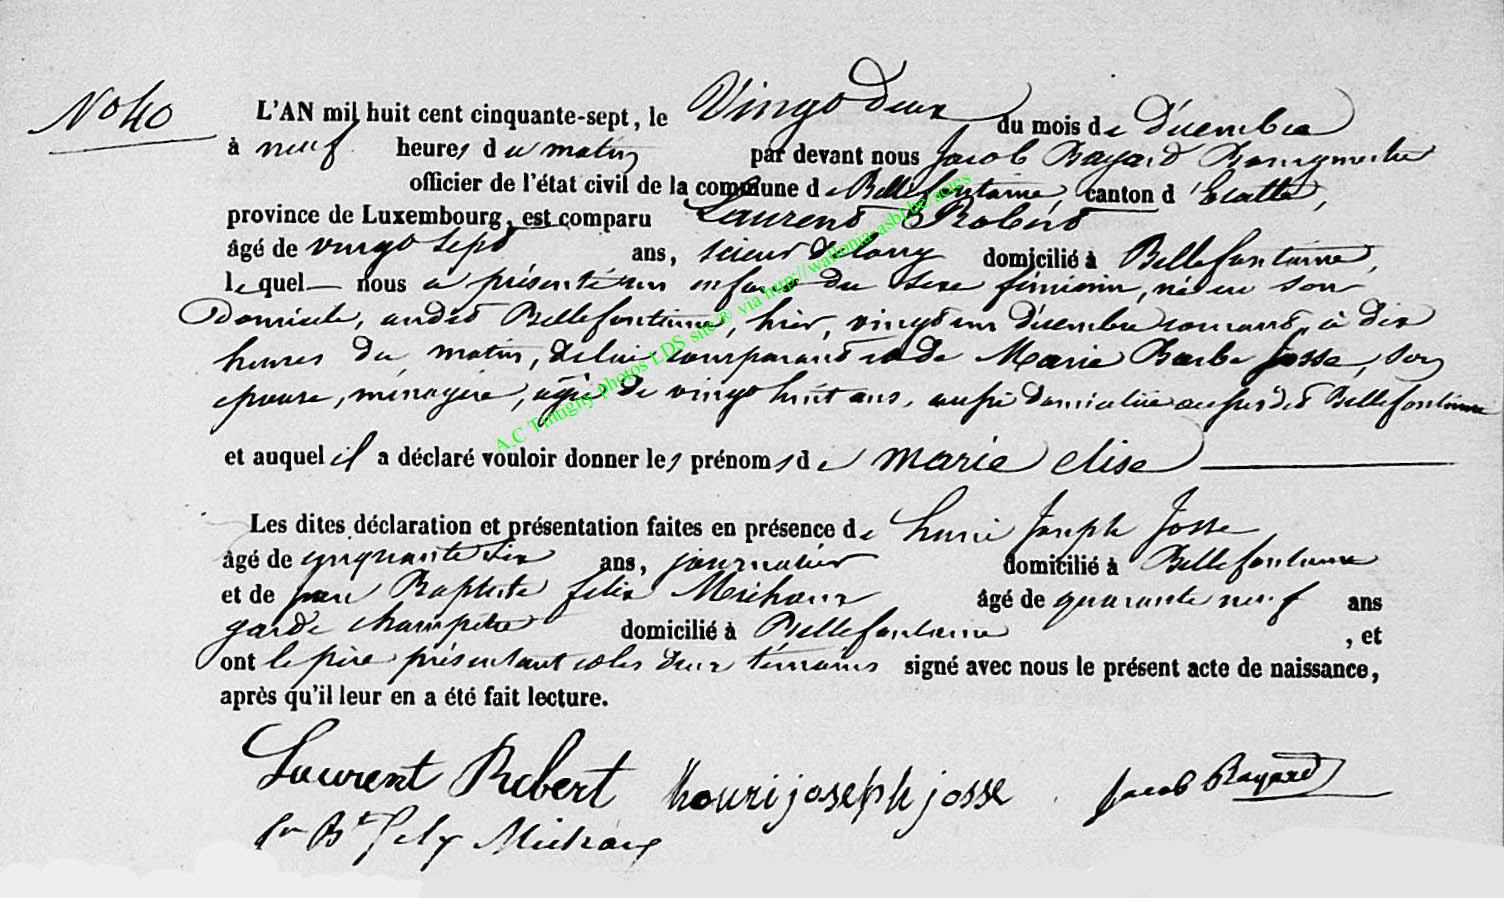 No 40
L'AN mil huit cent cinquante-sept, le Vingt Deux du mois de Décembre
à neuf heures du matin par devant nous Jacob Bayard Bourgmestre
officier de l'état civil de la commune de Bellefontaine, canton d'Etalle,
province de Luxembourg, est comparu Laurent Robert
âgé de vingt sept ans, scieur de long domicilié à Bellefontaine,
lequel nous a présenté un enfant du sexe féminin, né en son
Domicile, audit Bellefontaine, hier, vingt un Décembre courant, à dix
heures du matin, de lui comparant et de Marie Barbe Josse, son
épouse, ménagère, âgée de vingt huit ans, aussi domiciliée au susdit Bellefontaine
et auquel il a déclaré vouloir donner les prénoms de marie elise
Les dites déclaration et présentation faites en présence de henri Joseph Josse
âgé de cinquante six ans, journalier domicilié à Bellefontaine
et de jean Baptiste felix Michaux âgé de quarante neuf ans
garde champêtre domicilié à Bellefontaine , et
ont le père présentant et les deux témoins signé avec nous le présent acte de naissance,
après qu'il leur en a été fait lecture.
Laurent Robert hounri joseph josse Jacob Bayard
Jn Bte Fely Michaux
A.C Tintigny photos LDS site ® via http://wallonia-asbl.be/actes